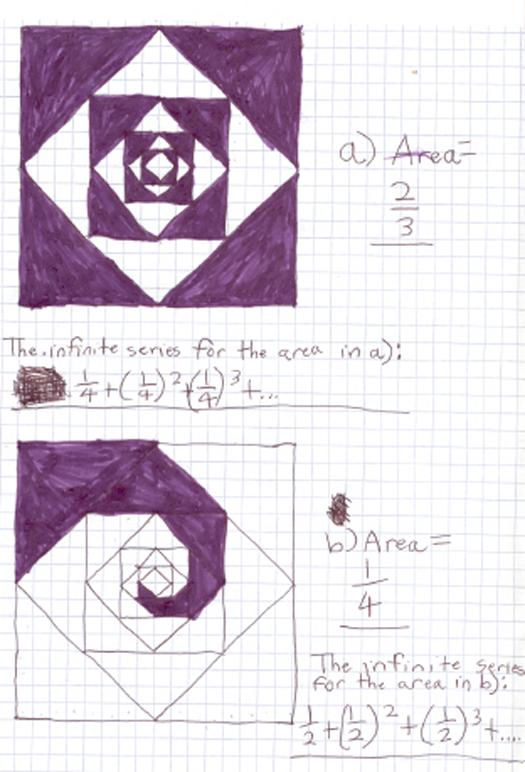 a) Area=
2
3
The infinite series for the area in a):
1/4+(1/4)²+(1/4)³+...
b) Area=
1
4
The infinite series
for the area in b):
1/2+(1/2)²+(1/2)³+....